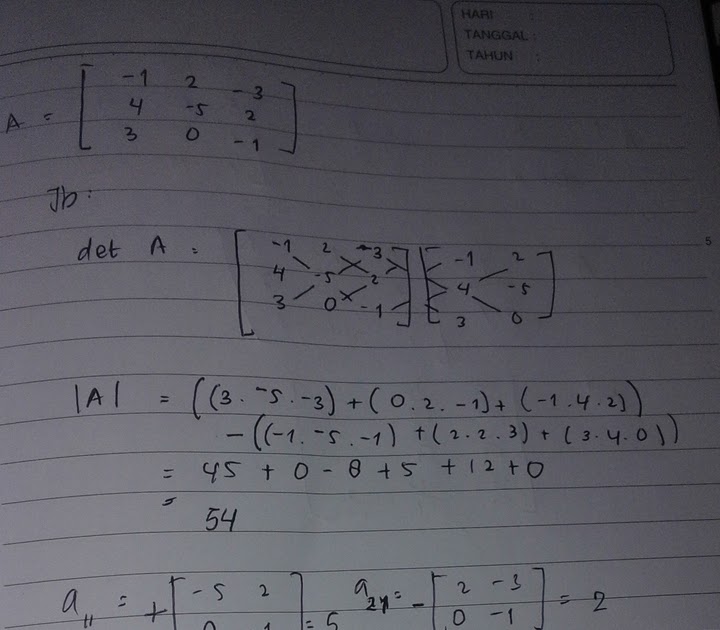 HARI :
TANGGAL :
TAHUN :
A = [ -1 2 -3
4 -5 2
3 0 -1 ]
Jb :
5
det A = [ -1 2 -3 ] [ -1 2 ]
4 -5 2 4 -5
3 0 -1 3 0
|A| = ((3 . -5 . -3) + (0 . 2 . -1) + (-1 . 4 . 2))
- ((-1 . -5 . -1) + (2 . 2 . 3) + (3 . 4 . 0))
= 45 + 0 - 8 + 5 + 12 + 0
= 54
a₁₁ = + [ -5 2 ] = 5 a₂₁ = - [ 2 -3 ] = 2
0 -1